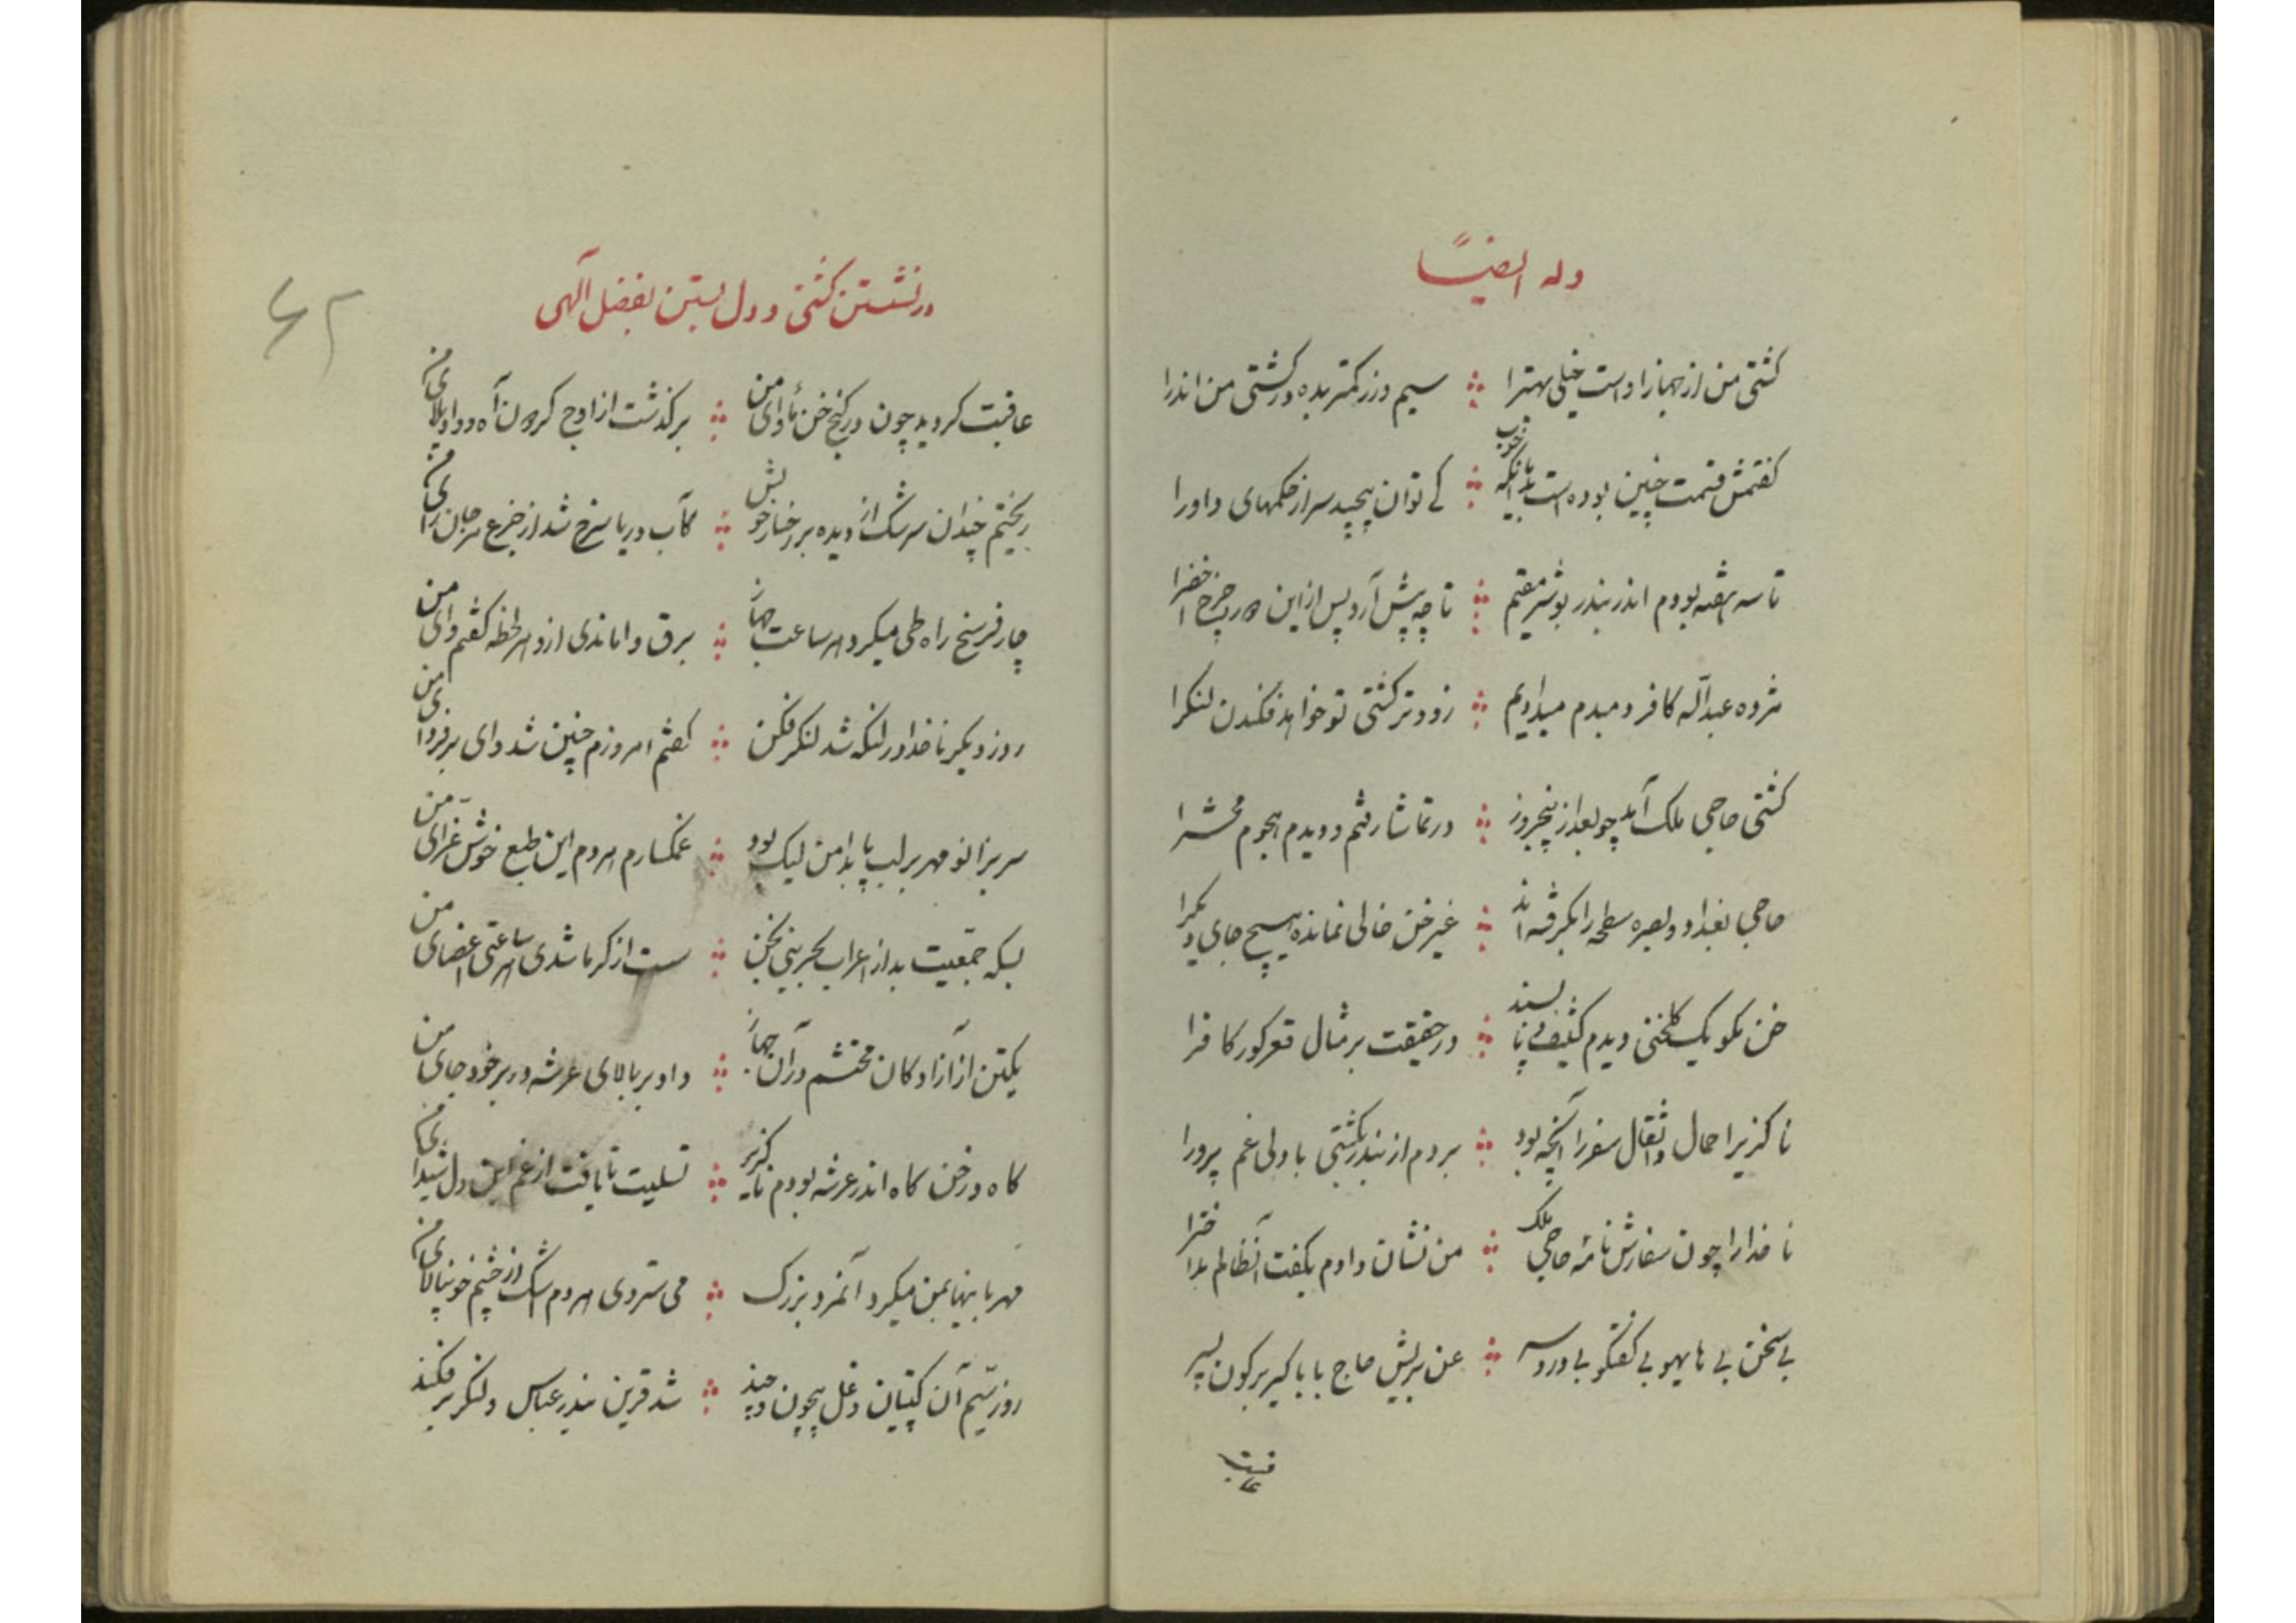 وله ایضاً
کشتی من از جهاز او است خیلی بهترا سیم و زر کمتر بده در کشتی من اندرا
گفتمش قسمت چنین بوده است خوب کے توان پیچید سر از حکمهای داورا
تا سه هفته بودم اندر بندر بوشهر مقیم تا چه پیش آرد پس از این چرخ اخضرا
مژده عبدالله کافر دمبدم میدادیم زودتر کشتی تو خواهد فکندن لنگرا
کشتی حاجی ملک آمد چو بعد از پنجروز در تماشا رفتم و دیدم هجوم محشرا
حاجی بغداد و بصره سطحه را بگرفته اند غیر خن خالی نمانده هیچ جای دیگرا
خن مگو یک گلخنی دیدم کثیف و ناپسند در حقیقت بر مثال قعر گور کافرا
ناگزیر احمال و اثقال سفر را آنچه بود بردم از بندر بکشتی با دلی غم پرورا
ناخدا را چون سفارش نامهٔ حاجی ملک من نشان دادم بگفت آنظالم بد اخترا
بی سخن بی هایهو بی گفتگو بی دردسر عن بریش حاج بابا کیر بر کون پسر
عاقبت
در نشستن کشتی و دل بستن بفضل آلهی
۶۲
عاقبت گردید چون در کنج خن مأوای من برگذشت از اوج گردون آه و واویلای من
ریختم چندان سرشک از دیده بر رخسار خویش کآب دریا سرخ شد از جزع مرجان زای من
چار فرسخ راه طی میکرد هر ساعت جهاز برق واماندی ازو هر لحظه گفتم وای من
روز دیگر ناخدا در لنگه شد لنگر فکن گفتم امروزم چنین شد وای بر فردای من
سر بزانو مهر بر لب پا بدامن لیک بود غمگسارم هر دم این طبع خوش غرای من
بسکه جمعیت بد از اعراب بحرینی بخن سست از گرما شدی هر ساعتی اعضای من
یکتن از آزادگان محتشم در آن جهاز داد بر بالای عرشه در بر خود جای من
گاه در خن گاه اندر عرشه بودم ناگزیر تسلیت تا یافت از غم این دل شیدای من
مهربانیها بمن میکرد آنمرد بزرگ می ستردی هر دم اشک از چشم خونپالای من
روز سیم آن کپتیان دغل بیچون و چند شد قرین بندر عباس و لنگر بر فکند